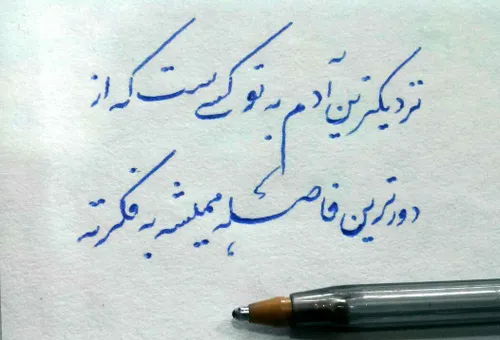 نزدیکترین آدم به تو کسےست که از
دورترین فاصله همیشه به فکرته